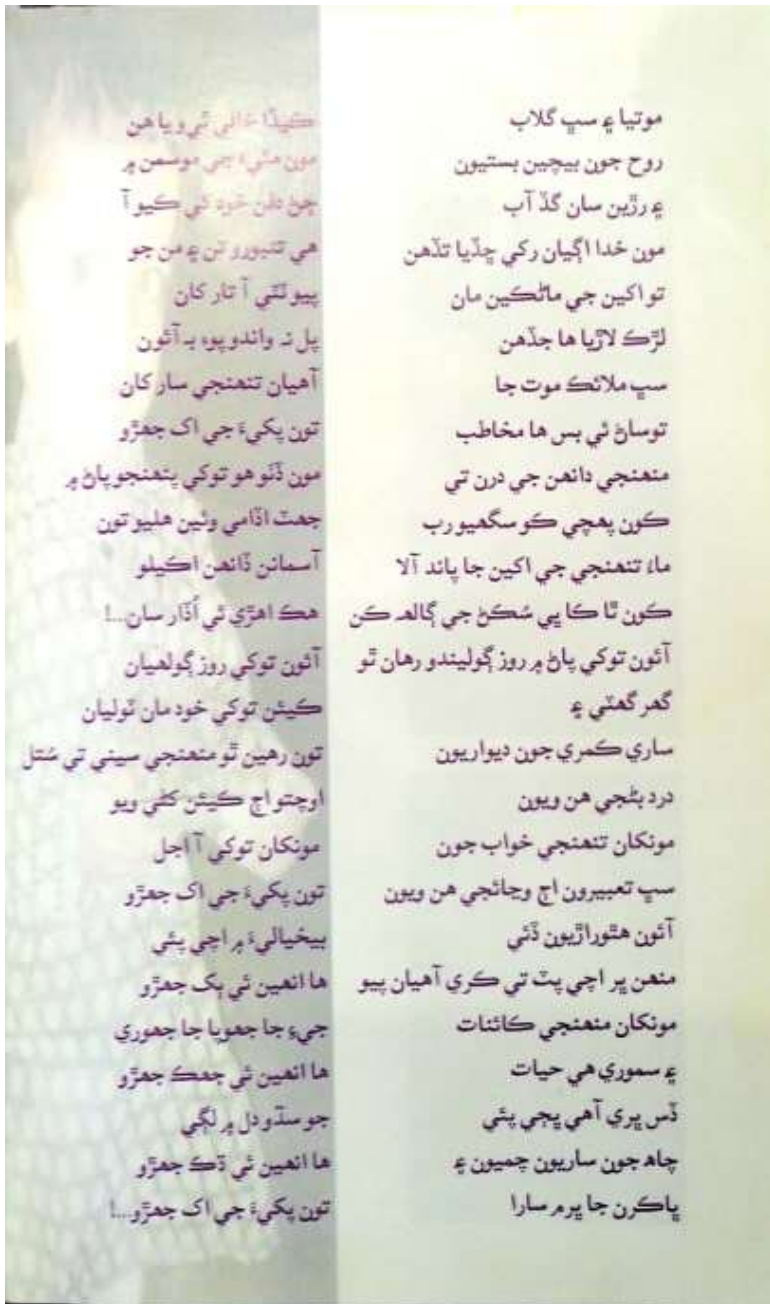 موتيا ۽ سڀ گلاب
روح جون بيچين بستيون
۽ رڙين سان گڏ آب
مون خدا اڳيان رکي ڇڏيا تڏهن
تو اکين جي ماڻڪين مان
لڙڪ لاڙيا ها جڏهن
سڀ ملائڪ موت جا
توساڻ ئي بس ها مخاطب
منهنجي دانهن جي درن تي
ڪون پهچي ڪو سگهيو رب
ماءُ تنهنجي جي اکين جا پاند آلا
ڪون ٿا ڪا ٻي سُڪڻ جي ڳالهه ڪن
آئون توکي پاڻ ۾ روز ڳوليندو رهان ٿو
گهر گهٽي ۽
ساري ڪمري جون ديواريون
درد بڻجي هن ويون
مونکان تنهنجي خواب جون
سڀ تعبيرون اڄ وڃائجي هن ويون
آئون هٿوراڙيون ڏئي
منهن ڀر اچي پٽ تي ڪري آهيان پيو
مونکان منهنجي ڪائنات
۽ سموري هي حيات
ڏس ڀري آهي ڀڄي پئي
چاهه جون ساريون چميون ۽
ڀاڪرن جا ڀرم سارا
ڪيڏا خالي ٿي ويا هن
مون مٽيءَ جي موسمن ۾
ڄڻ دفن خود ئي ڪيو آ
هي تنبورو تن ۽ من جو
پيو ٽٽي آ تار کان
پل نه واندو پوءِ به آئون
آهيان تنهنجي سار کان
تون پکيءَ جي اک جهڙو
مون ڏٺو هو توکي پنهنجو پاڻ ۾
جهٽ اڏامي وئين هليو تون
آسمانن ڏانهن اڪيلو
هڪ اهڙي ئي اُڏار سان...!
آئون توکي روز ڳولهيان
ڪيئن توکي خود مان ٽوليان
تون رهين ٿو منهنجي سيني تي سُتل
اوچتو اڄ ڪيئن کڻي ويو
مونکان توکي آ اجل
تون پکيءَ جي اک جهڙو
بيخياليءَ ۾ اچي پئي
ها انهين ئي ٻک جهڙو
جيءَ جا جهوپا جا جهوري
ها انهين ئي جهڪ جهڙو
جو سڌو دل ۾ لڳي
ها انهين ئي ڌڪ جهڙو
تون پکيءَ جي اک جهڙو...!